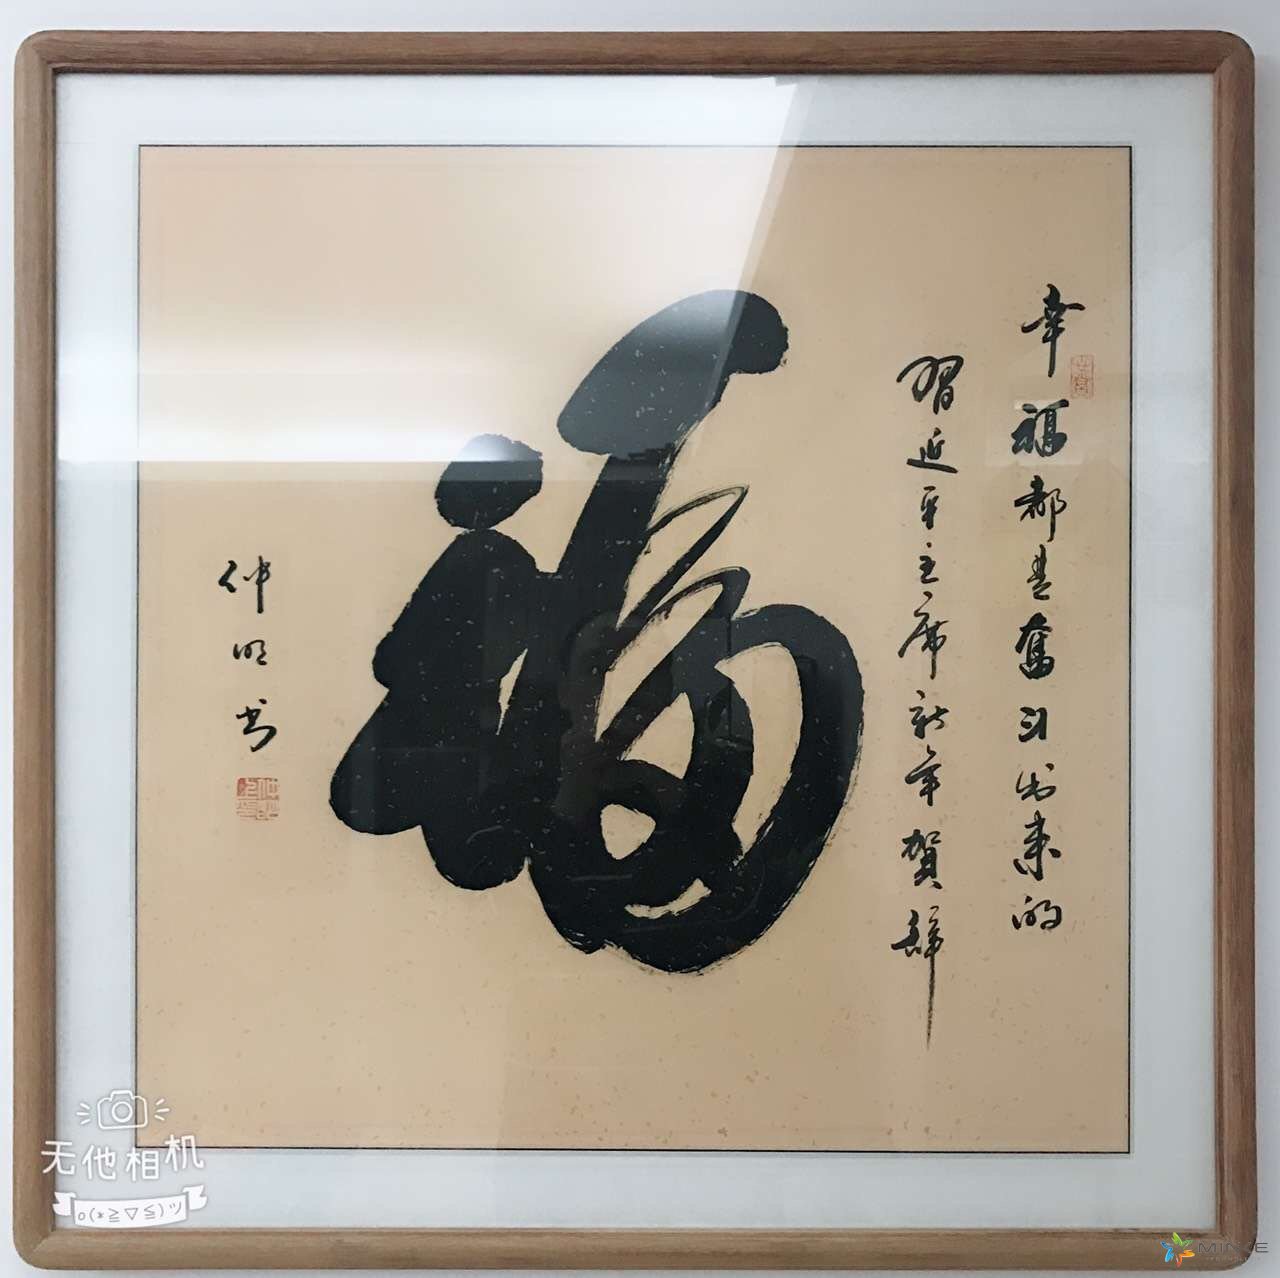 幸福都是奮斗出来的
習近平主席新年賀辞
福
仲明书
无他相机
o(*≧▽≦)ツ
MINKE